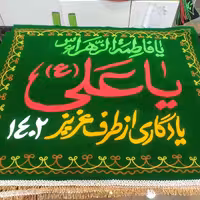 یا فاطمة الزهرا(س)
یا علی (ع)
یادگاری از طرف عزیز
۱۴۰۲